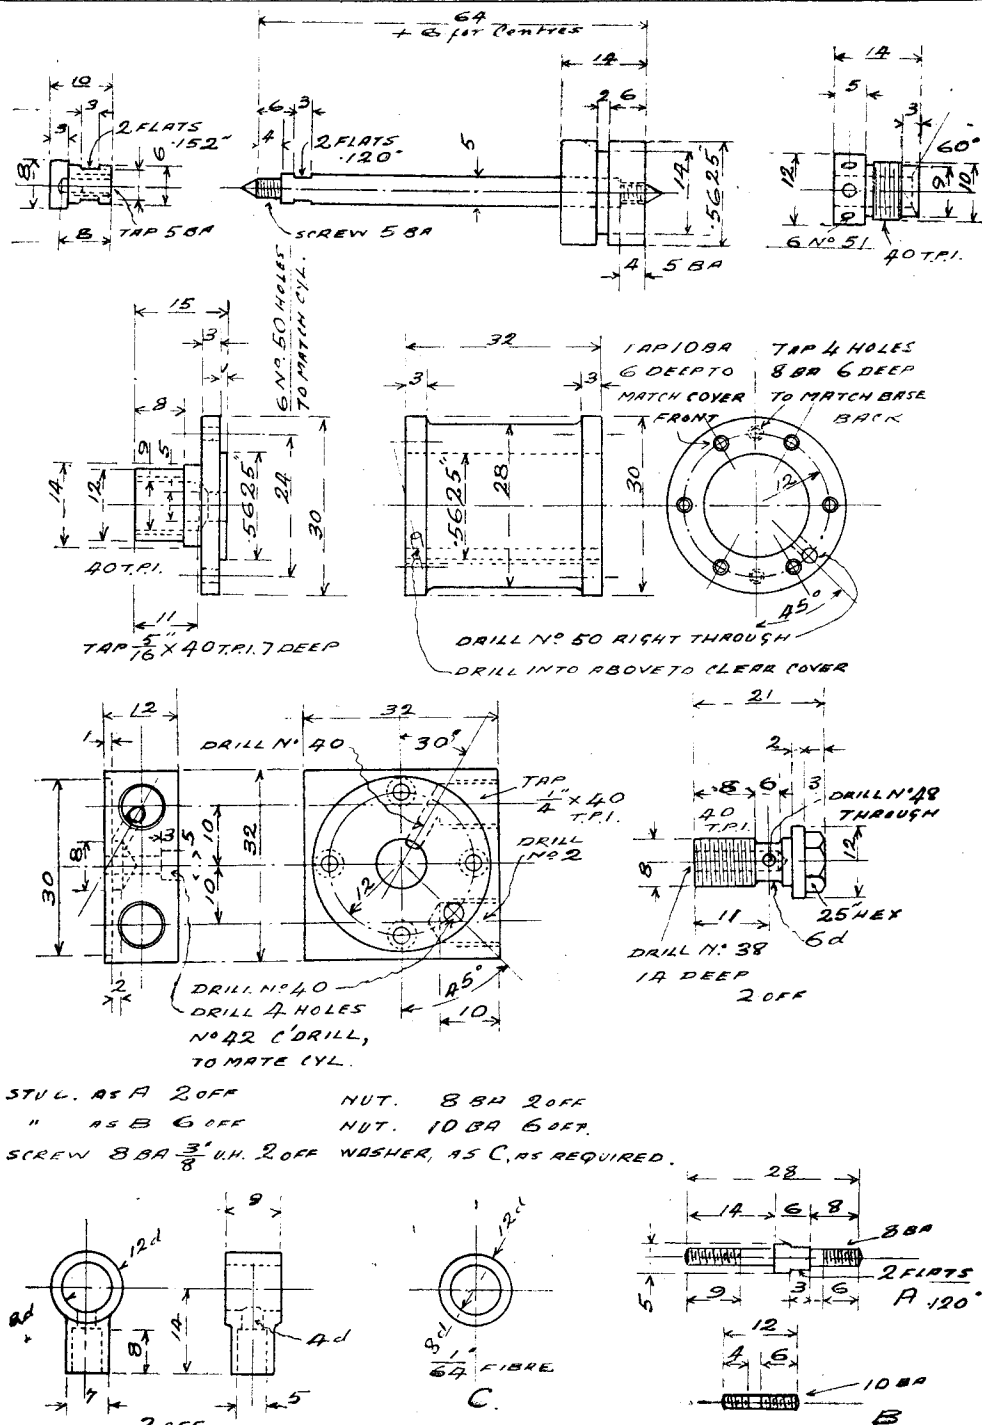 64
+ 6 for Centres
14
2 6
6 3
4
2 FLATS
.120"
5
14
.5625"
SCREW 5 BA
4 5 BA
10
3
3
2 FLATS
.152"
8
6
8
TAP 5 BA
14
5
3
60°
12
9
10
6 Nº 51
40 T.P.I.
15
3
8
9
5
14
12
.5625"
24
30
6 Nº 50 HOLES
TO MATCH CYL.
40 T.P.I.
11
TAP 5/16" X 40 T.P.I. 7 DEEP
32
3
3
.5625"
28
30
TAP 10 BA
6 DEEP TO
MATCH COVER
FRONT
TAP 4 HOLES
8 BA 6 DEEP
TO MATCH BASE
BACK
12
45°
DRILL Nº 50 RIGHT THROUGH
DRILL INTO ABOVE TO CLEAR COVER
12
1
30
8
3
5
10
10
32
2
32
DRILL Nº 40
30°
TAP
1/4" X 40
T.P.I.
DRILL
Nº 2
12
45°
10
DRILL Nº 40
DRILL 4 HOLES
Nº 42 C'DRILL,
TO MATE CYL.
21
2
8
6
3
40
T.P.I.
DRILL Nº 48
THROUGH
8
12
11
.25" HEX
6d
DRILL Nº 38
14 DEEP
2 OFF
STUD. AS A 2 OFF
" AS B 6 OFF
NUT. 8 BA 2 OFF
NUT. 10 BA 6 OFF.
SCREW 8 BA 3/8" U.H. 2 OFF WASHER, AS C, AS REQUIRED.
12d
8
7
2 OFF
9
14
4d
5
12d
8d
1/64" FIBRE
C.
28
14
6
8
8 BA
5
9
3
6
2 FLATS
A .120"
12
4
6
10 BA
B